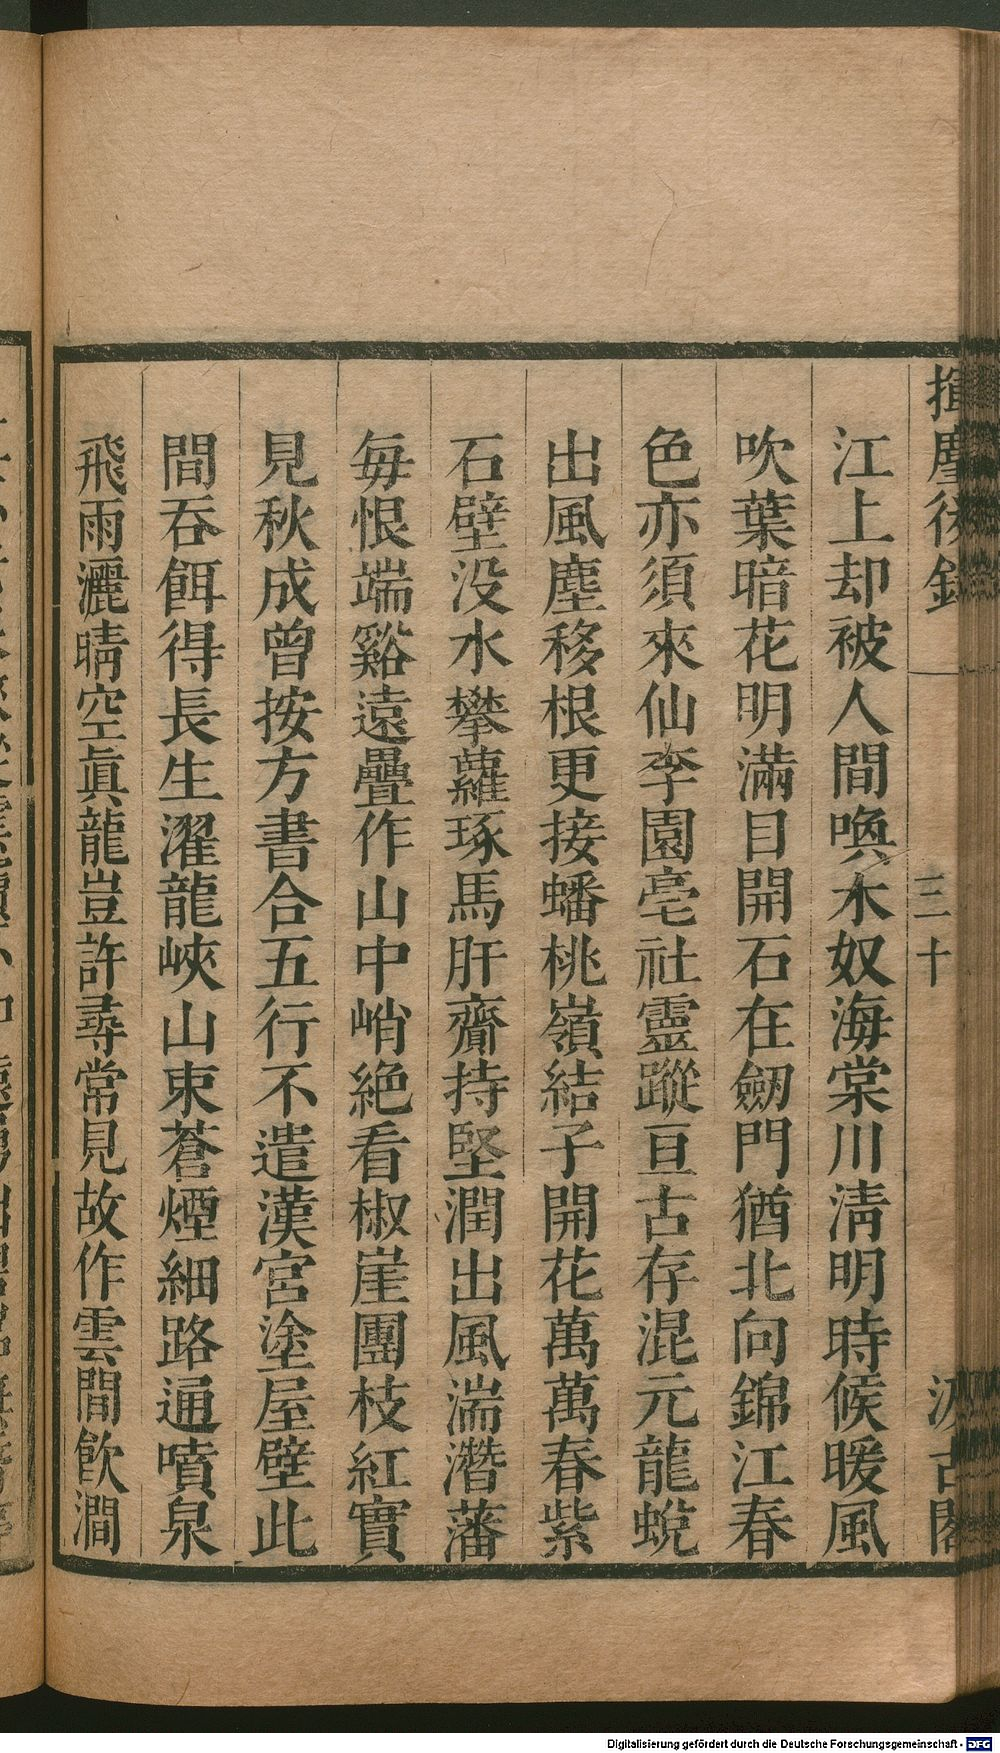 揮麈後錄
三十
汲古閣
江上却被人間喚木奴海棠川淸明時候暖風
吹葉暗花明滿目開石在劒門猶北向錦江春
色亦須來仙李園亳社靈蹤亘古存混元龍蛻
出風塵移根更接蟠桃嶺結子開花萬萬春紫
石壁没水攀蘿琢馬肝齎持堅潤出風湍濳藩
每恨端谿遠疊作山中峭絶看椒崖團枝紅實
見秋成曾按方書合五行不遣漢宮塗屋壁此
間吞餌得長生濯龍峽山束蒼煙細路通噴泉
飛雨灑晴空眞龍豈許尋常見故作雲間飮澗
Digitalisierung gefördert durch die Deutsche Forschungsgemeinschaft - DFG